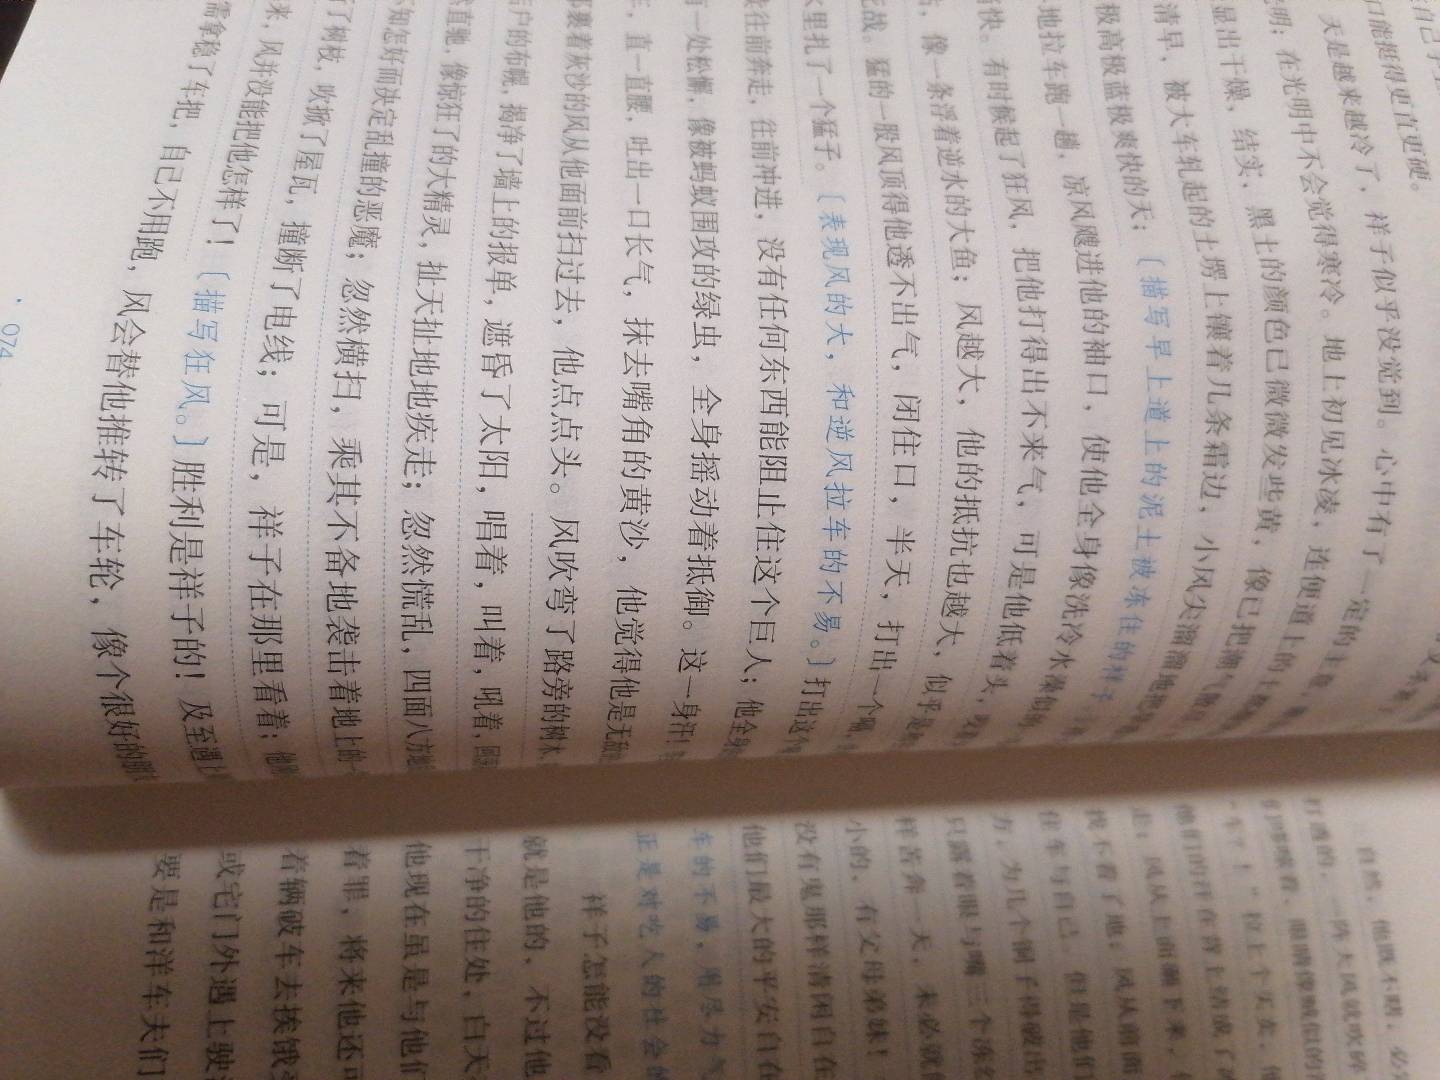 们能挺得更直更硬。
天是越来越冷了，祥子似乎没觉到。心中有了一定的主
明；在光明中不会觉得寒冷。地上初见冰凌，连便道上的土
显出干燥，结实，黑土的颜色已微微发些黄，像已把潮气
清早，被大车轧起的土塄上镶着几条霜边，小风尖溜溜地把
极高极蓝极爽快的天；〔描写早上道上的泥土被冻住的样子
地拉车跑一趟，凉风飕进他的袖口，使他全身像洗冷水澡似的
快。有时候起了狂风，把他打得出不来气，可是他低着头，
，像一条浮着逆水的大鱼；风越大，他的抵抗也越大，似乎是
战。猛的一股风顶得他透不出气，闭住口，半天，打出一个嗝，
水里扎了一个猛子。〔表现风的大，和逆风拉车的不易。〕打出这个
往前奔走，往前冲进，没有任何东西能阻止住这个巨人；他全身
有一处松懈，像被蚂蚁围攻的绿虫，全身摇动着抵御。这一身汗！
，直一直腰，吐出一口长气，抹去嘴角的黄沙，他觉得他是无敌
裹着灰沙的风从他面前扫过去，他点点头。风吹弯了路旁的树木
户的布幌，揭净了墙上的报单，遮昏了太阳，唱着，叫着，吼着，回
直驰，像惊狂了的大精灵，扯天扯地地疾走；忽然慌乱，四面八方地
知怎好而决定乱撞的恶魔；忽然横扫，乘其不备地袭击着地上的一
了树枝，吹掀了屋瓦，撞断了电线；可是，祥子在那里看着；他
来，风并没能把他怎样了！〔描写狂风。〕胜利是祥子的！及至遇上
需拿稳了车把，自己不用跑，风会替他推转了车轮，像个很好的朋
074
自然，他既不瞎，必
打酒的，一阵大风就吹碎
一车？！”拉上个买卖，
他们的汗在背上结成了
走；风从上面砸下来，
找不着了地；风从前面
住车与自己，但是他们
方，为几个铜子得破出
只露着眼与嘴三个冻
样苦奔一天，未必就
小的，有父母弟妹！
没有鬼那样清闲自在
他们最大的平安自在
车的不易，用尽力气
正是对吃人的社会的
祥子怎能没看
就是他的，不过他
干净的住处，白天
他现在虽是与他们
着罪，将来他还可
着辆破车去挨饿
或宅门外遇上驶
要是和洋车夫们